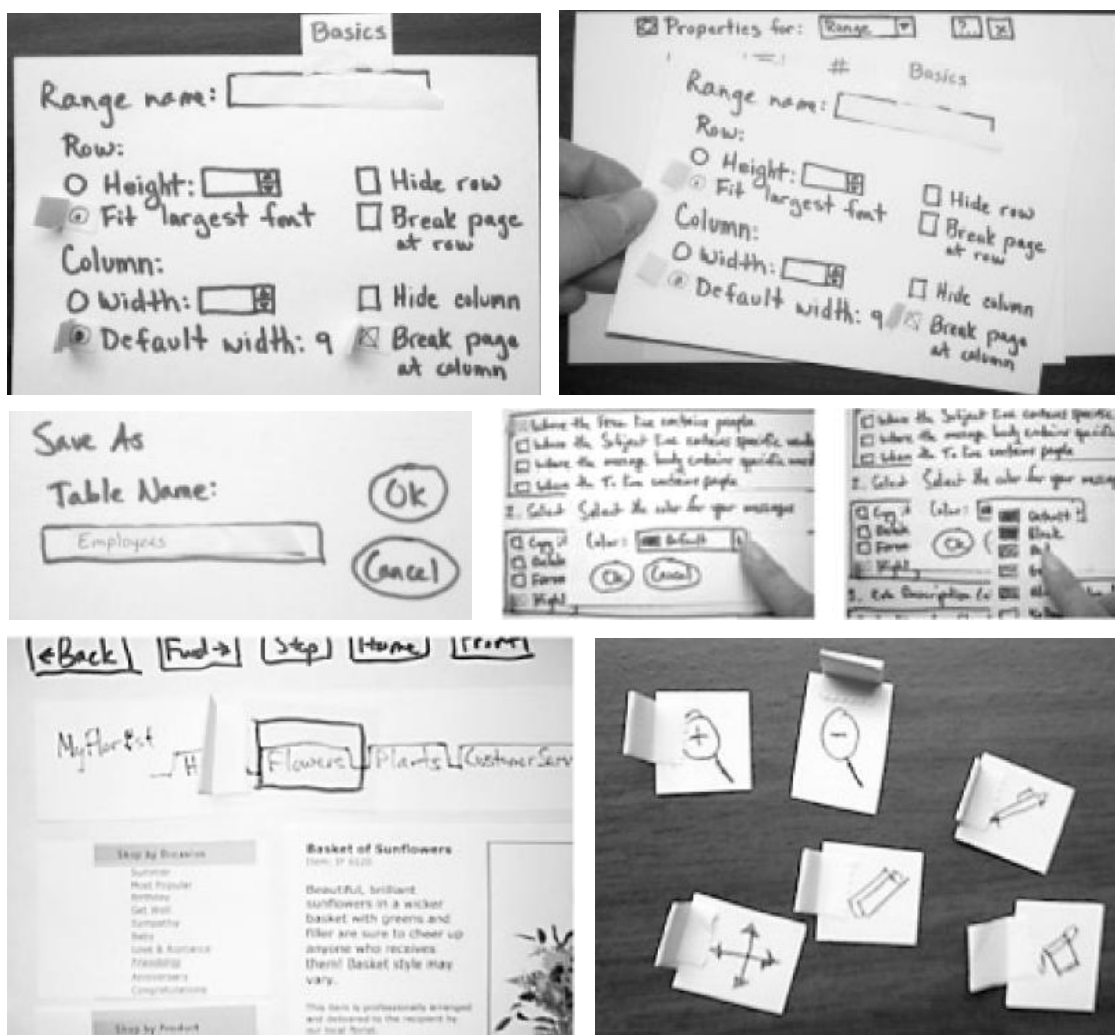 Basics
Range name:
Row:
Height:
Hide row
Fit largest font
Break page
at row
Column:
Width:
Hide column
Default width: 9
Break page
at column
Properties for: Range ?.. x
# Basics
Range name:
Row:
Height:
Hide row
Fit largest font
Break page
at row
Column:
Width:
Hide column
Default width: 9
Break page
at column
Save As
Table Name:
Ok
Employees
Cancel
Where the From line contains people
Where the Subject line contains specific
Where the message body contains specific
Where the To line contains people
2. Select Select the color for your messages
Copy it
Color: Default
Delete
Forw
Ok Cancel
Highl
Where the Subject line contains specific
Where the message body contains specific
Where the To line contains people
2. Select Select the color for your messages
Copy it
Color: Default
Delete
Black
Forw
Ok
←Back Fwd→ Stop Home Print
MyFlorist
H Flowers Plants Customer Serv
Shop by Occasion
Summer
Most Popular
Birthday
Get Well
Sympathy
Baby
Love & Romance
Friendship
Anniversary
Congratulations
Shop by Product
Basket of Sunflowers
Beautiful, brilliant
sunflowers in a wicker
basket with greens and
filler are sure to cheer up
anyone who receives
them! Basket style may
vary.
This item is professionally arranged
and delivered to the recipient by
our local florist.
+
-